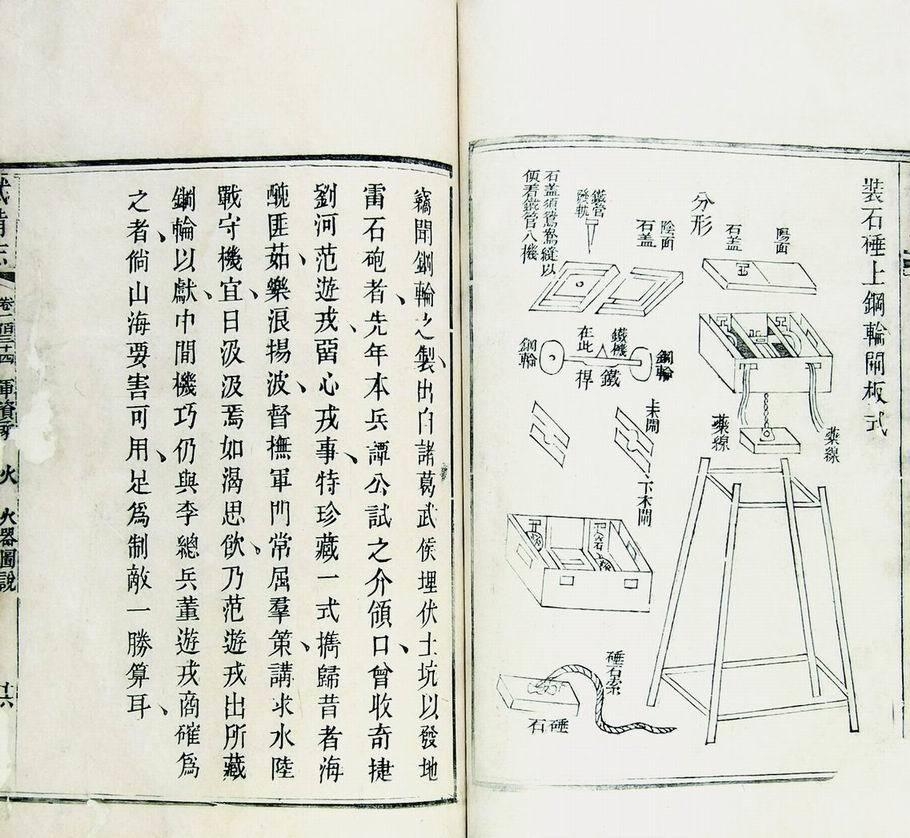 裝石硾上鋼輪閘板式
陽面
石盖
分形
陰面
石盖
鐵管
石盖須鴛鴦縫以
便看鐵管入機
鋼輪
鐵機
在此
鐵
桿
鋼輪
上木閘
下木閘
藥線
藥線
火石
硾石索
石硾
竊聞鋼輪之製出自諸葛武侯埋伏土坑以發地
雷石砲者先年本兵譚公試之介領口曾收奇捷
劉河范遊戎畱心戎事特珍藏一式携歸昔者海
醜匪茹樂浪揚波督撫軍門常屈羣策講求水陸
戰守機宜日汲汲焉如渴思飲乃范遊戎出所藏
鋼輪以獻巾間機巧仍與李總兵董遊戎商確爲
之者倘山海要害可用足爲制敵一勝算耳
武備志
卷一百三十四
軍資乘
火
火器圖說
十六